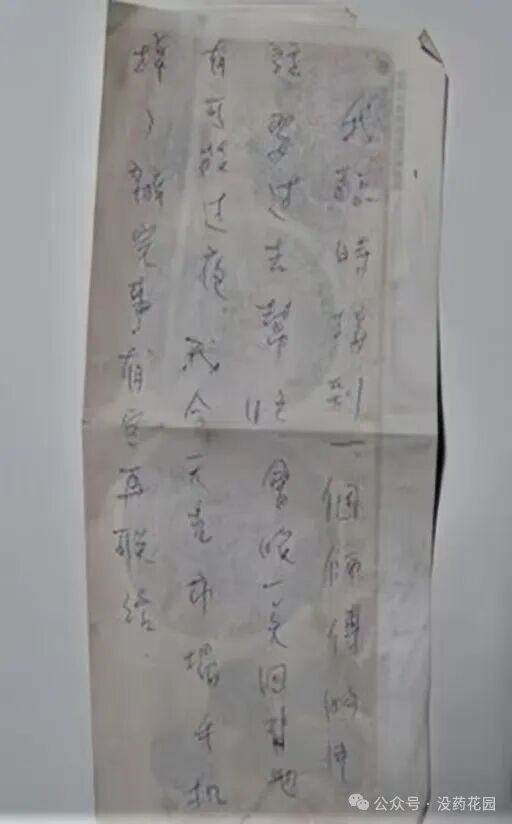 我臨時接到一個師傅的申
請要过去幫忙會晚一點回背包
有可能过夜，我今天去市場手机
掉了辦完事有空再联络.
公众号·没药花园